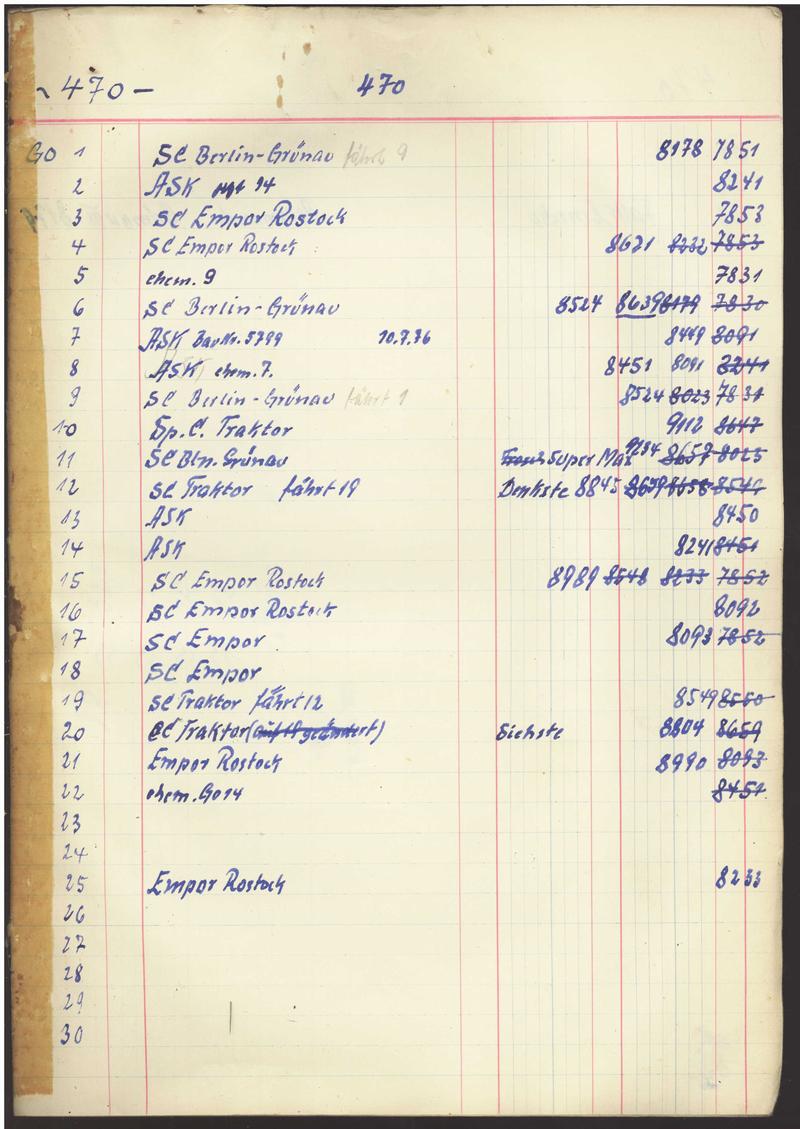 ~ 470 — 470
GO 1 SC Berlin-Grünau fährt 9 8178 7851
2 ASK 14 8241
3 SC Empor Rostock 7853
4 SC Empor Rostock 8621 8232 7853
5 ehem. 9 7831
6 SC Berlin-Grünau 8524 8639 8179 7830
7 ASK Bau Nr. 5799 10.7.76 8449 8091
8 ASK ehem. 7. 8451 8091 8241
9 SC Berlin-Grünau fährt 1 8524 8023 7831
10 Sp.C. Traktor 9112 8647
11 SC Bln. Grünau Super Max 9234 8023
12 SC Traktor fährt 19 Denkste 8845
13 ASK 8450
14 ASK 8241 8451
15 SC Empor Rostock 8989 8548 8233 7852
16 SC Empor Rostock 8092
17 SC Empor 8093 7852
18 SC Empor
19 SC Traktor fährt 12 8549 8550
20 SC Traktor (auf 19 geändert) Siehste 8804 8659
21 Empor Rostock 8990 8093
22 ehem. Go 14 8451
23
24
25 Empor Rostock 8233
26
27
28
29
30